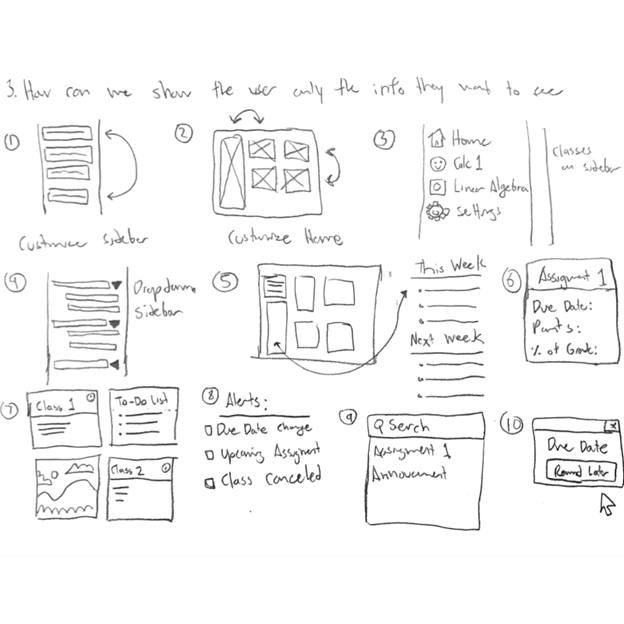 3. How can we show the user only the info they want to see
①
Customize sidebar
②
Customize Home
③
Home
Calc 1
Linear Algebra
Settings
Classes
on sidebar
④
Dropdown
Sidebar
⑤
This Week
Next Week
⑥
Assignment 1
Due Date:
Points:
% of Grade:
⑦
Class 1
To-Do List
Class 2
⑧
Alerts:
Due Date change
Upcoming Assigment
Class Canceled
⑨
Serch
Assignment 1
Announcement
⑩
x
Due Date
Later